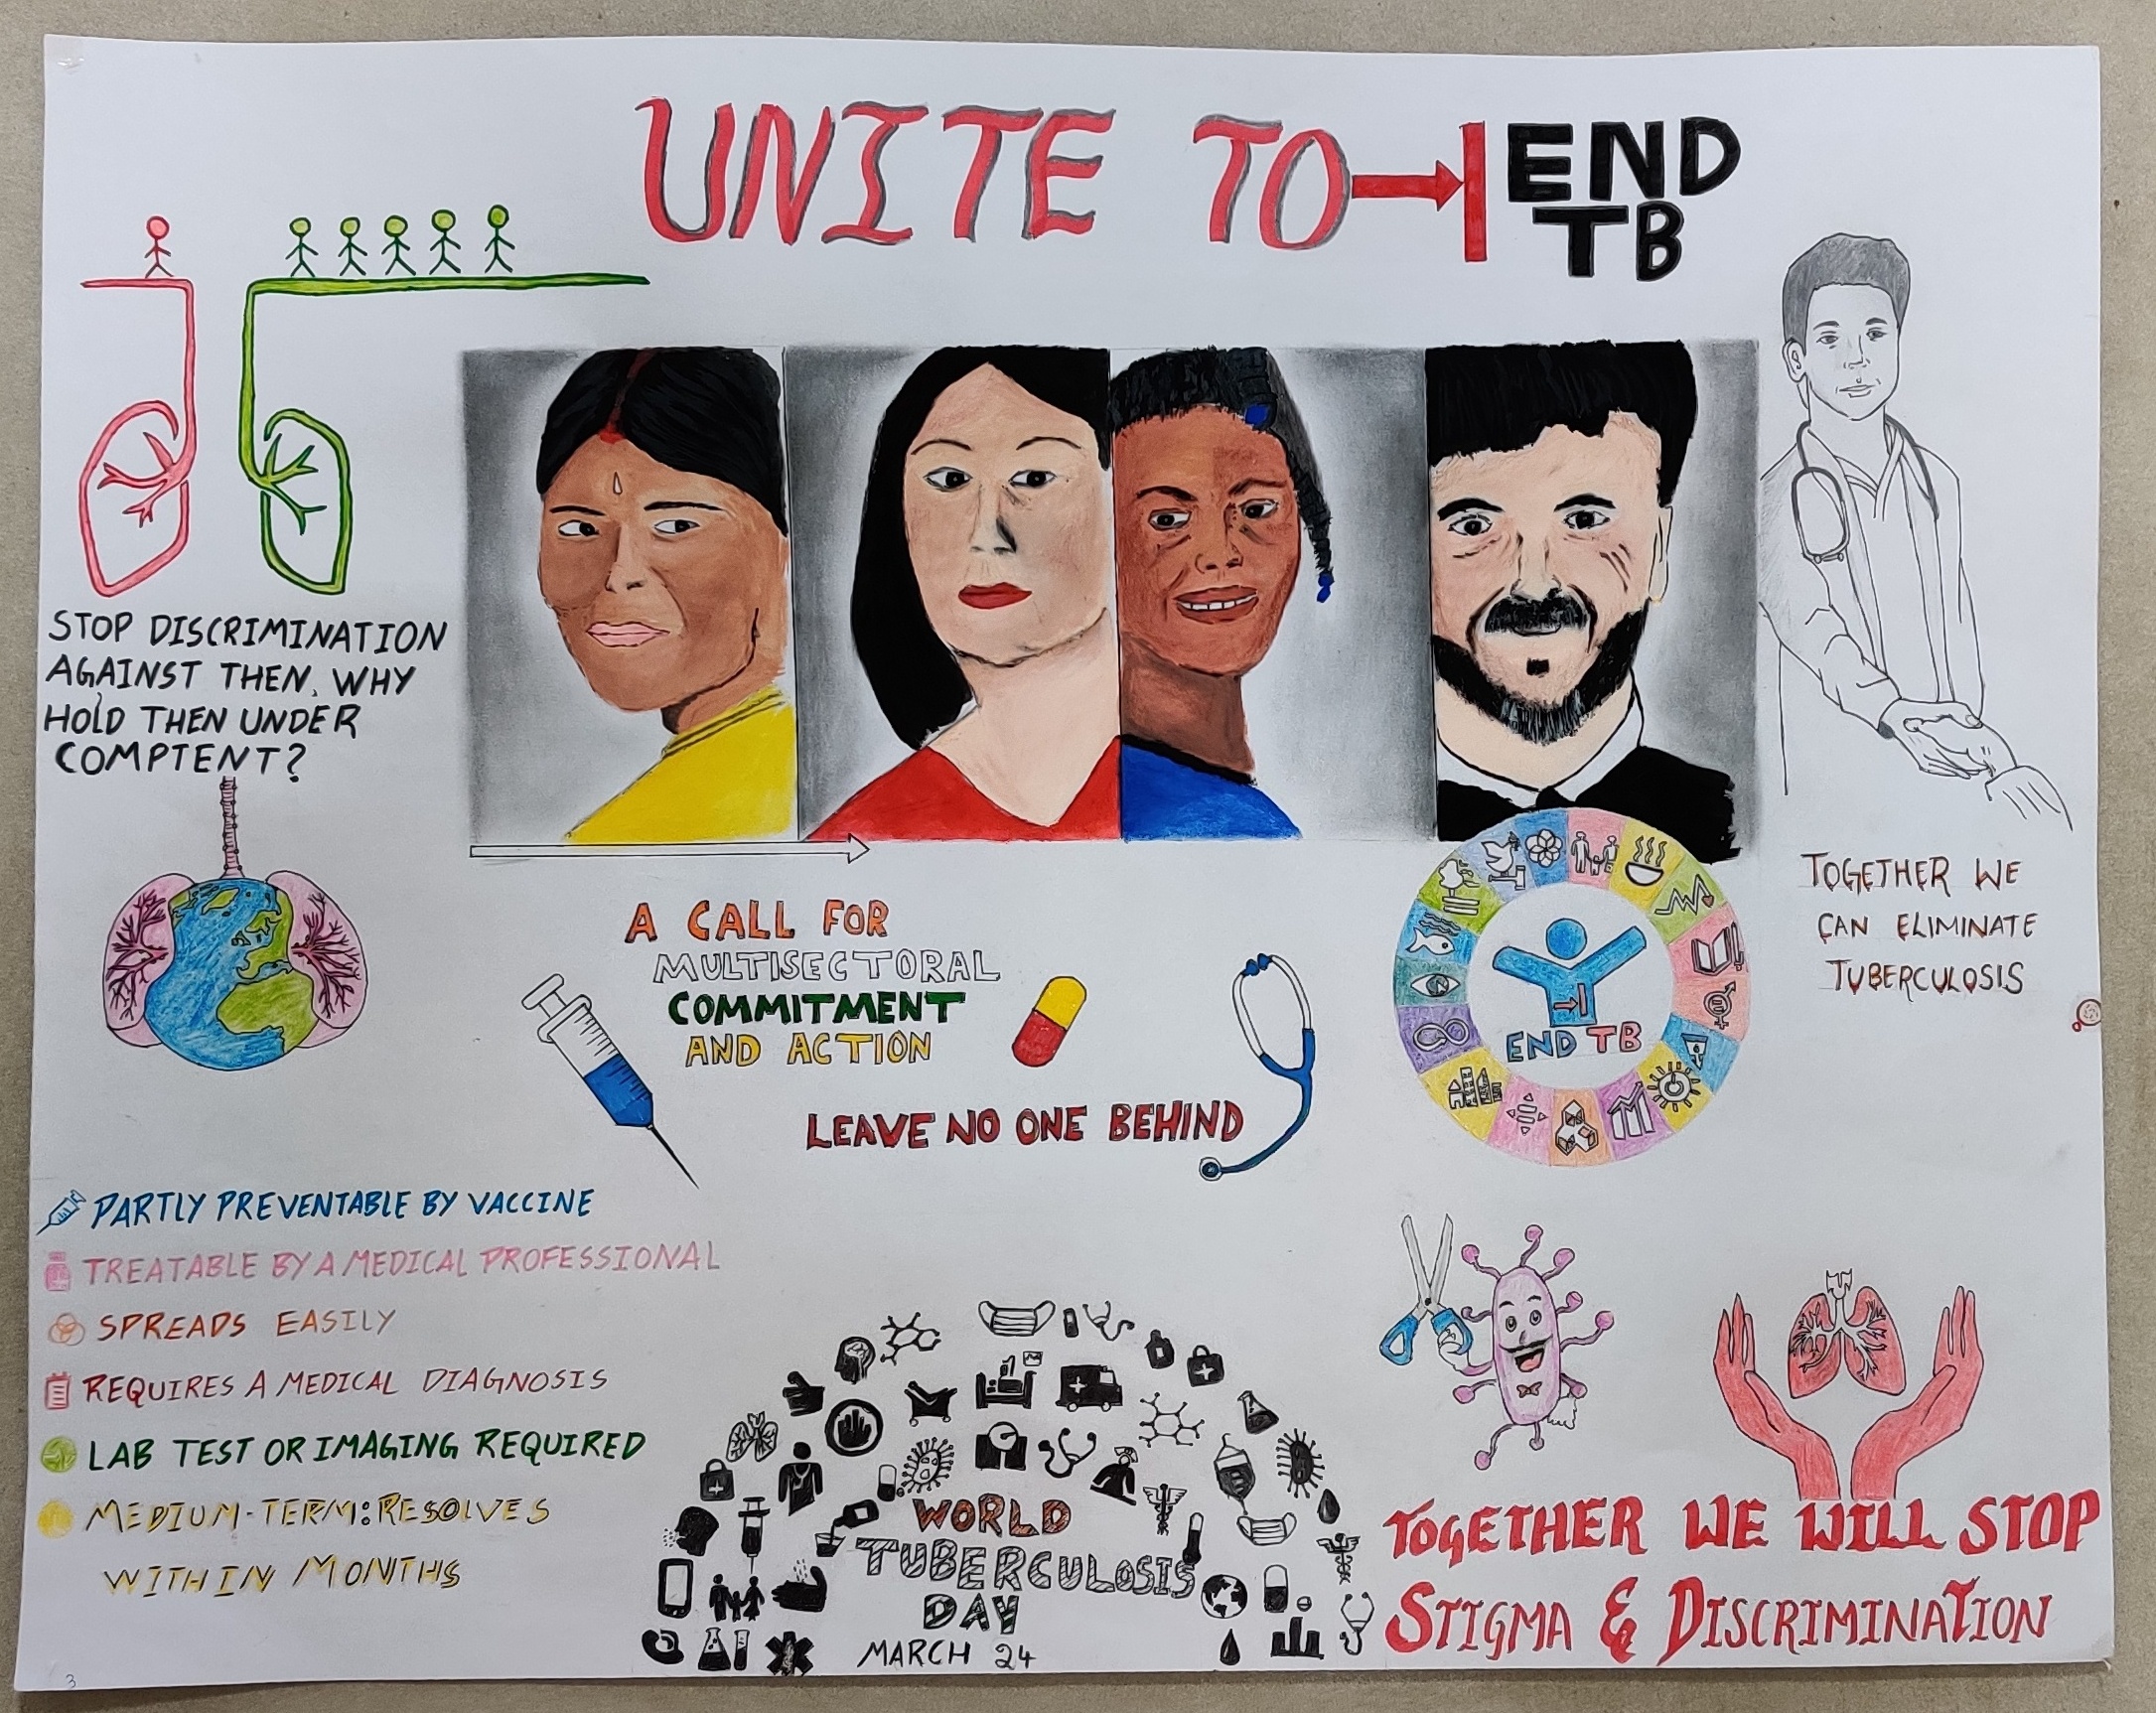 UNITE TO
END
TB
STOP DISCRIMINATION
AGAINST THEN, WHY
HOLD THEN UNDER
COMPTENT?
A CALL FOR
MULTISECTORAL
COMMITMENT
AND ACTION
LEAVE NO ONE BEHIND
END TB
TOGETHER WE
CAN ELIMINATE
TUBERCULOSIS
PARTLY PREVENTABLE BY VACCINE
TREATABLE BY A MEDICAL PROFESSIONAL
SPREADS EASILY
REQUIRES A MEDICAL DIAGNOSIS
LAB TEST OR IMAGING REQUIRED
MEDIUM-TERM: RESOLVES
WITHIN MONTHS
WORLD
TUBERCULOSIS
DAY
MARCH 24
TOGETHER WE WILL STOP
STIGMA & DISCRIMINATION
3